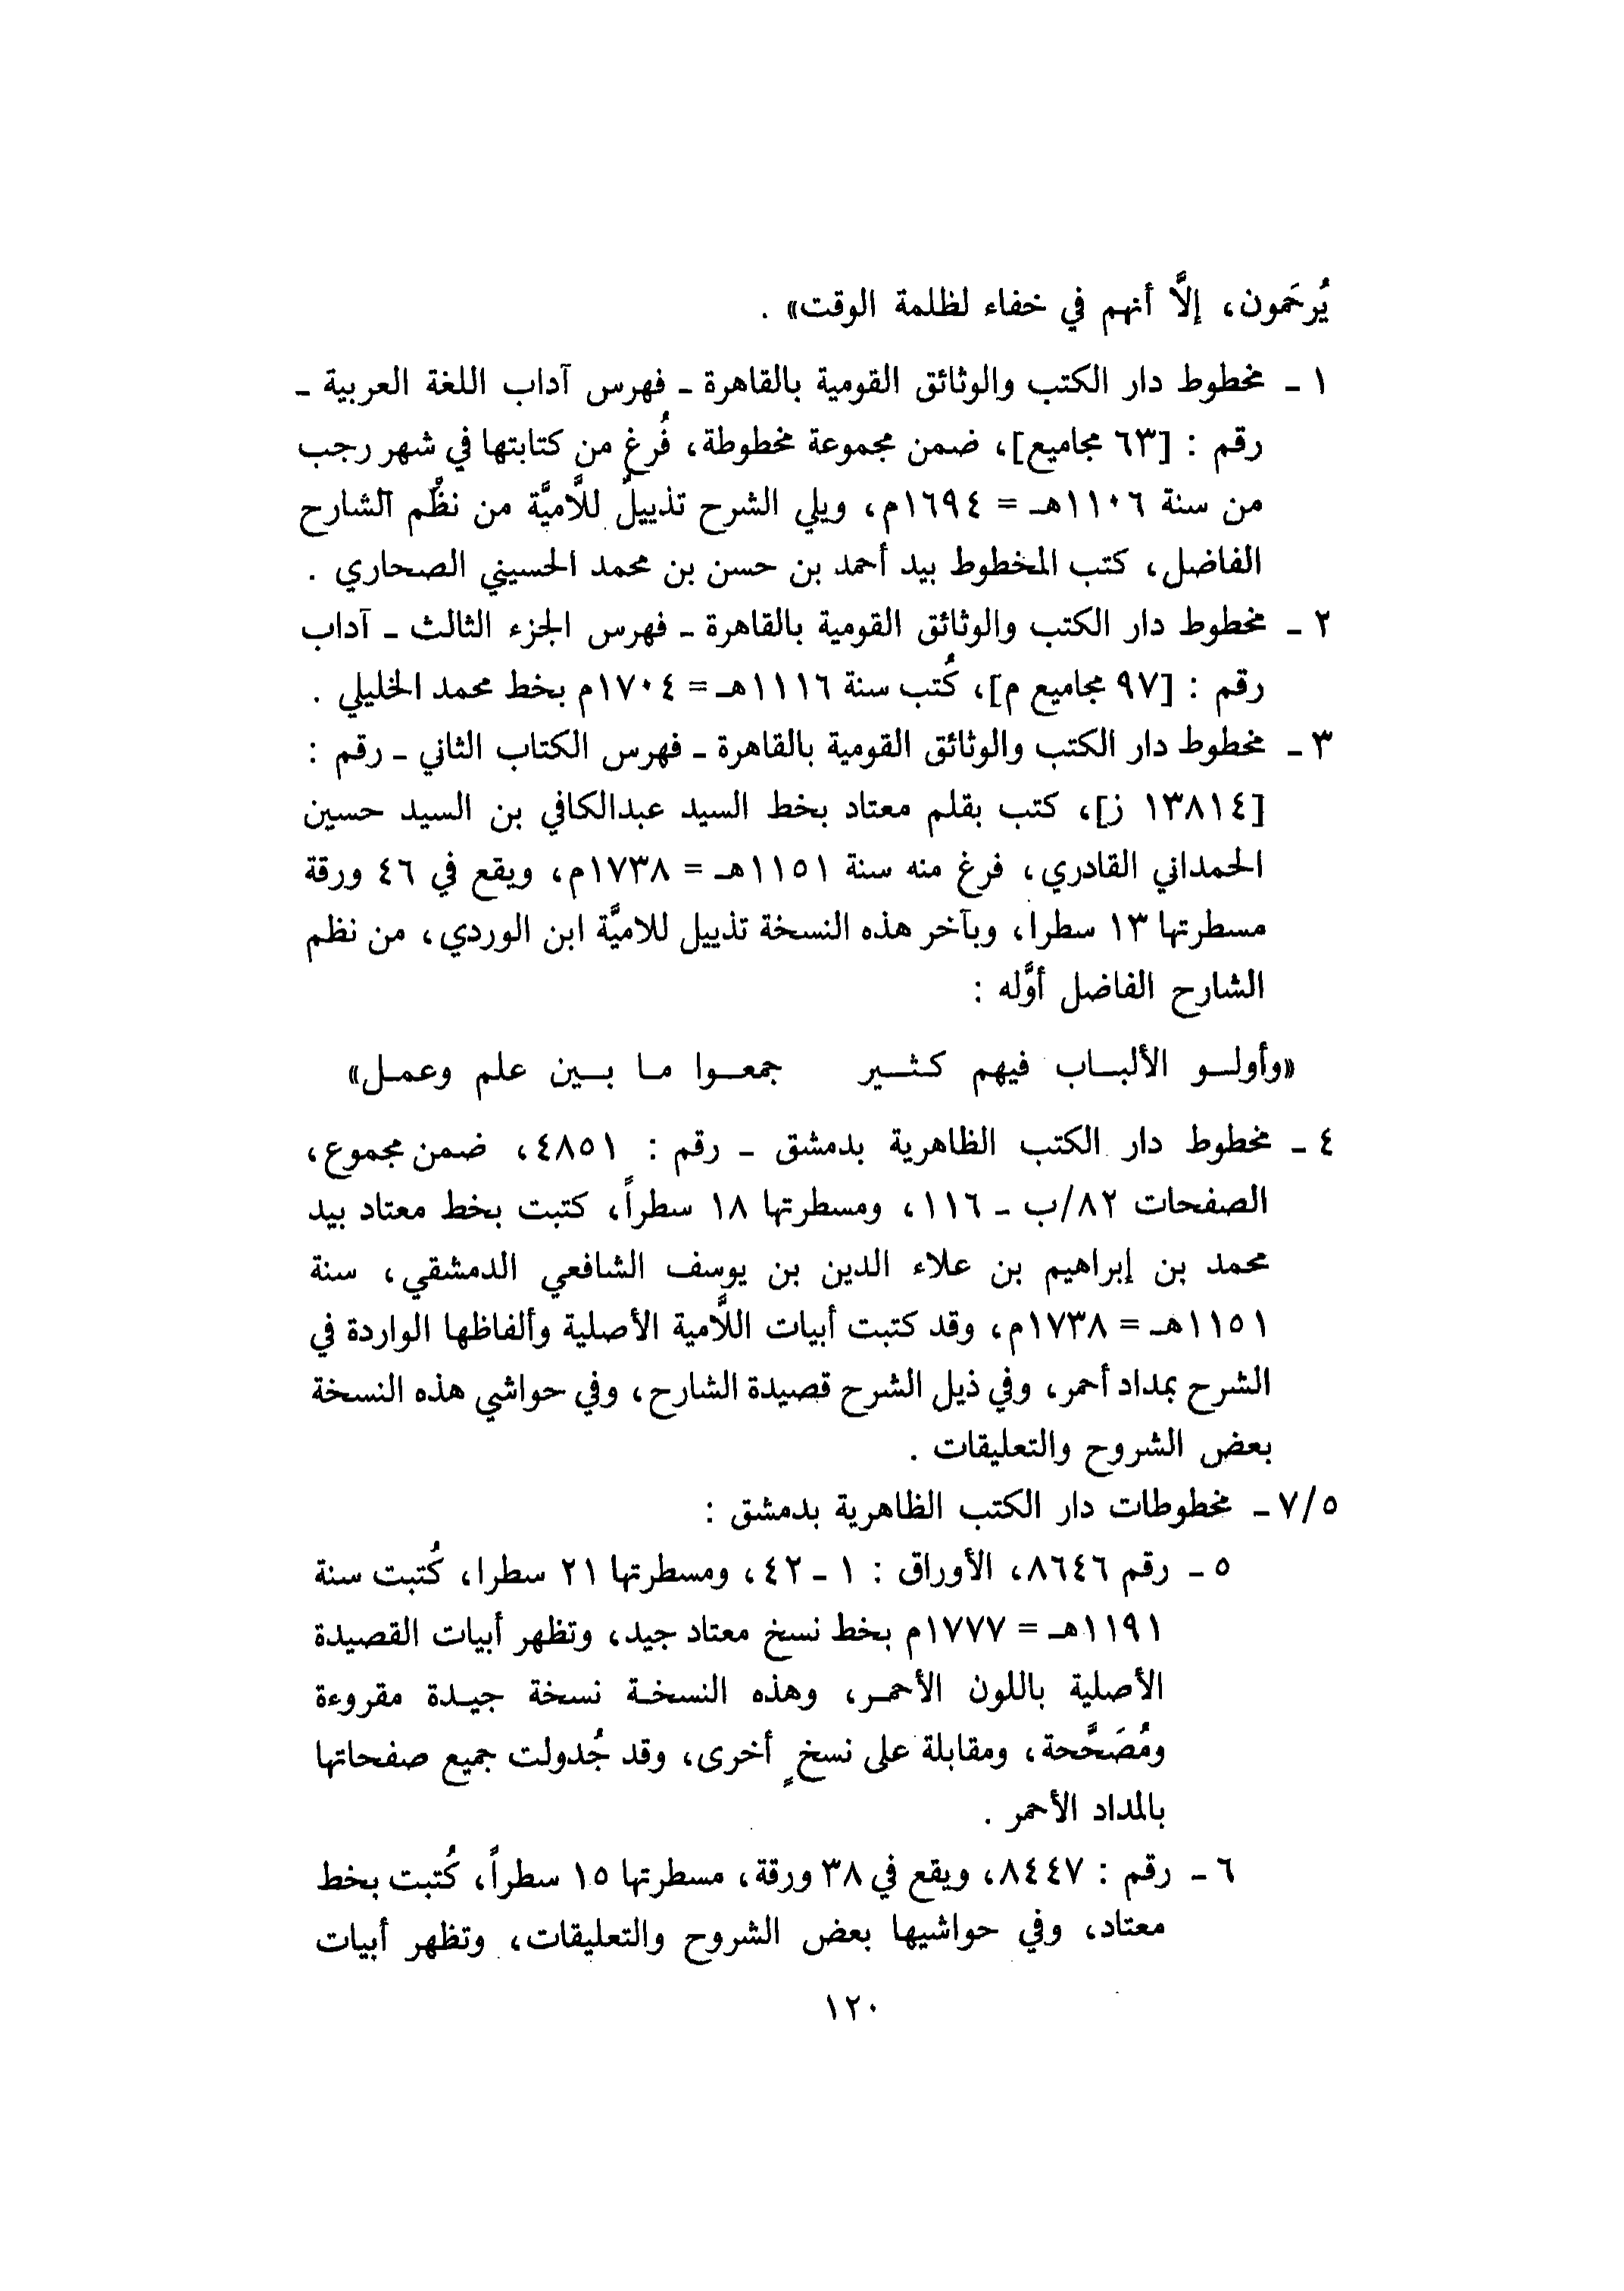 يُرحَمون، إلَّا أنهم في خفاء لظلمة الوقت» .
١ ـ مخطوط دار الكتب والوثائق القومية بالقاهرة ـ فهرس آداب اللغة العربية ـ
رقم : [٦٣ مجاميع]، ضمن مجموعة مخطوطة، فُرغ من كتابتها في شهر رجب
من سنة ١١٠٦هـ = ١٦٩٤م، ويلي الشرح تذييلٌ للَّاميَّة من نظْم الشارح
الفاضل، كتب المخطوط بيد أحمد بن حسن بن محمد الحسيني الصحاري .
٢ ـ مخطوط دار الكتب والوثائق القومية بالقاهرة ـ فهرس الجزء الثالث ـ آداب
رقم : [٩٧ مجاميع م]، كُتب سنة ١١١٦هـ = ١٧٠٤م بخط محمد الخليلي .
٣ ـ مخطوط دار الكتب والوثائق القومية بالقاهرة ـ فهرس الكتاب الثاني ـ رقم :
[١٣٨١٤ ز]، كتب بقلم معتاد بخط السيد عبدالكافي بن السيد حسين
الحمداني القادري، فرغ منه سنة ١١٥١هـ = ١٧٣٨م، ويقع في ٤٦ ورقة
مسطرتها ١٣ سطرا، وبآخر هذه النسخة تذييل للاميَّة ابن الوردي، من نظم
الشارح الفاضل أوَّله :
«وأولـو الألبـاب فيهم كـثـير جمعـوا مـا بـين علم وعمـل»
٤ ـ مخطوط دار الكتب الظاهرية بدمشق ـ رقم : ٤٨٥١، ضمن مجموع،
الصفحات ٨٢/ب ـ ١١٦، ومسطرتها ١٨ سطراً، كتبت بخط معتاد بيد
محمد بن إبراهيم بن علاء الدين بن يوسف الشافعي الدمشقي، سنة
١١٥١هـ = ١٧٣٨م، وقد كتبت أبيات اللَّامية الأصلية وألفاظها الواردة في
الشرح بمداد أحمر، وفي ذيل الشرح قصيدة الشارح، وفي حواشي هذه النسخة
بعض الشروح والتعليقات .
٧/٥ ـ مخطوطات دار الكتب الظاهرية بدمشق :
٥ ـ رقم ٨٦٤٦، الأوراق : ١ ـ ٤٢، ومسطرتها ٢١ سطرا، كُتبت سنة
١١٩١هـ = ١٧٧٧م بخط نسخ معتاد جيد، وتظهر أبيات القصيدة
الأصلية باللون الأحمـر، وهذه النسخـة نسخة جيـدة مقروءة
ومُصَحَّحة، ومقابلة على نسخٍ أخرى، وقد جُدولت جميع صفحاتها
بالمداد الأحمر .
٦ ـ رقم : ٨٤٤٧، ويقع في ٣٨ ورقة، مسطرتها ١٥ سطراً، كُتبت بخط
معتاد، وفي حواشيها بعض الشروح والتعليقات، وتظهر أبيات
١٢٠